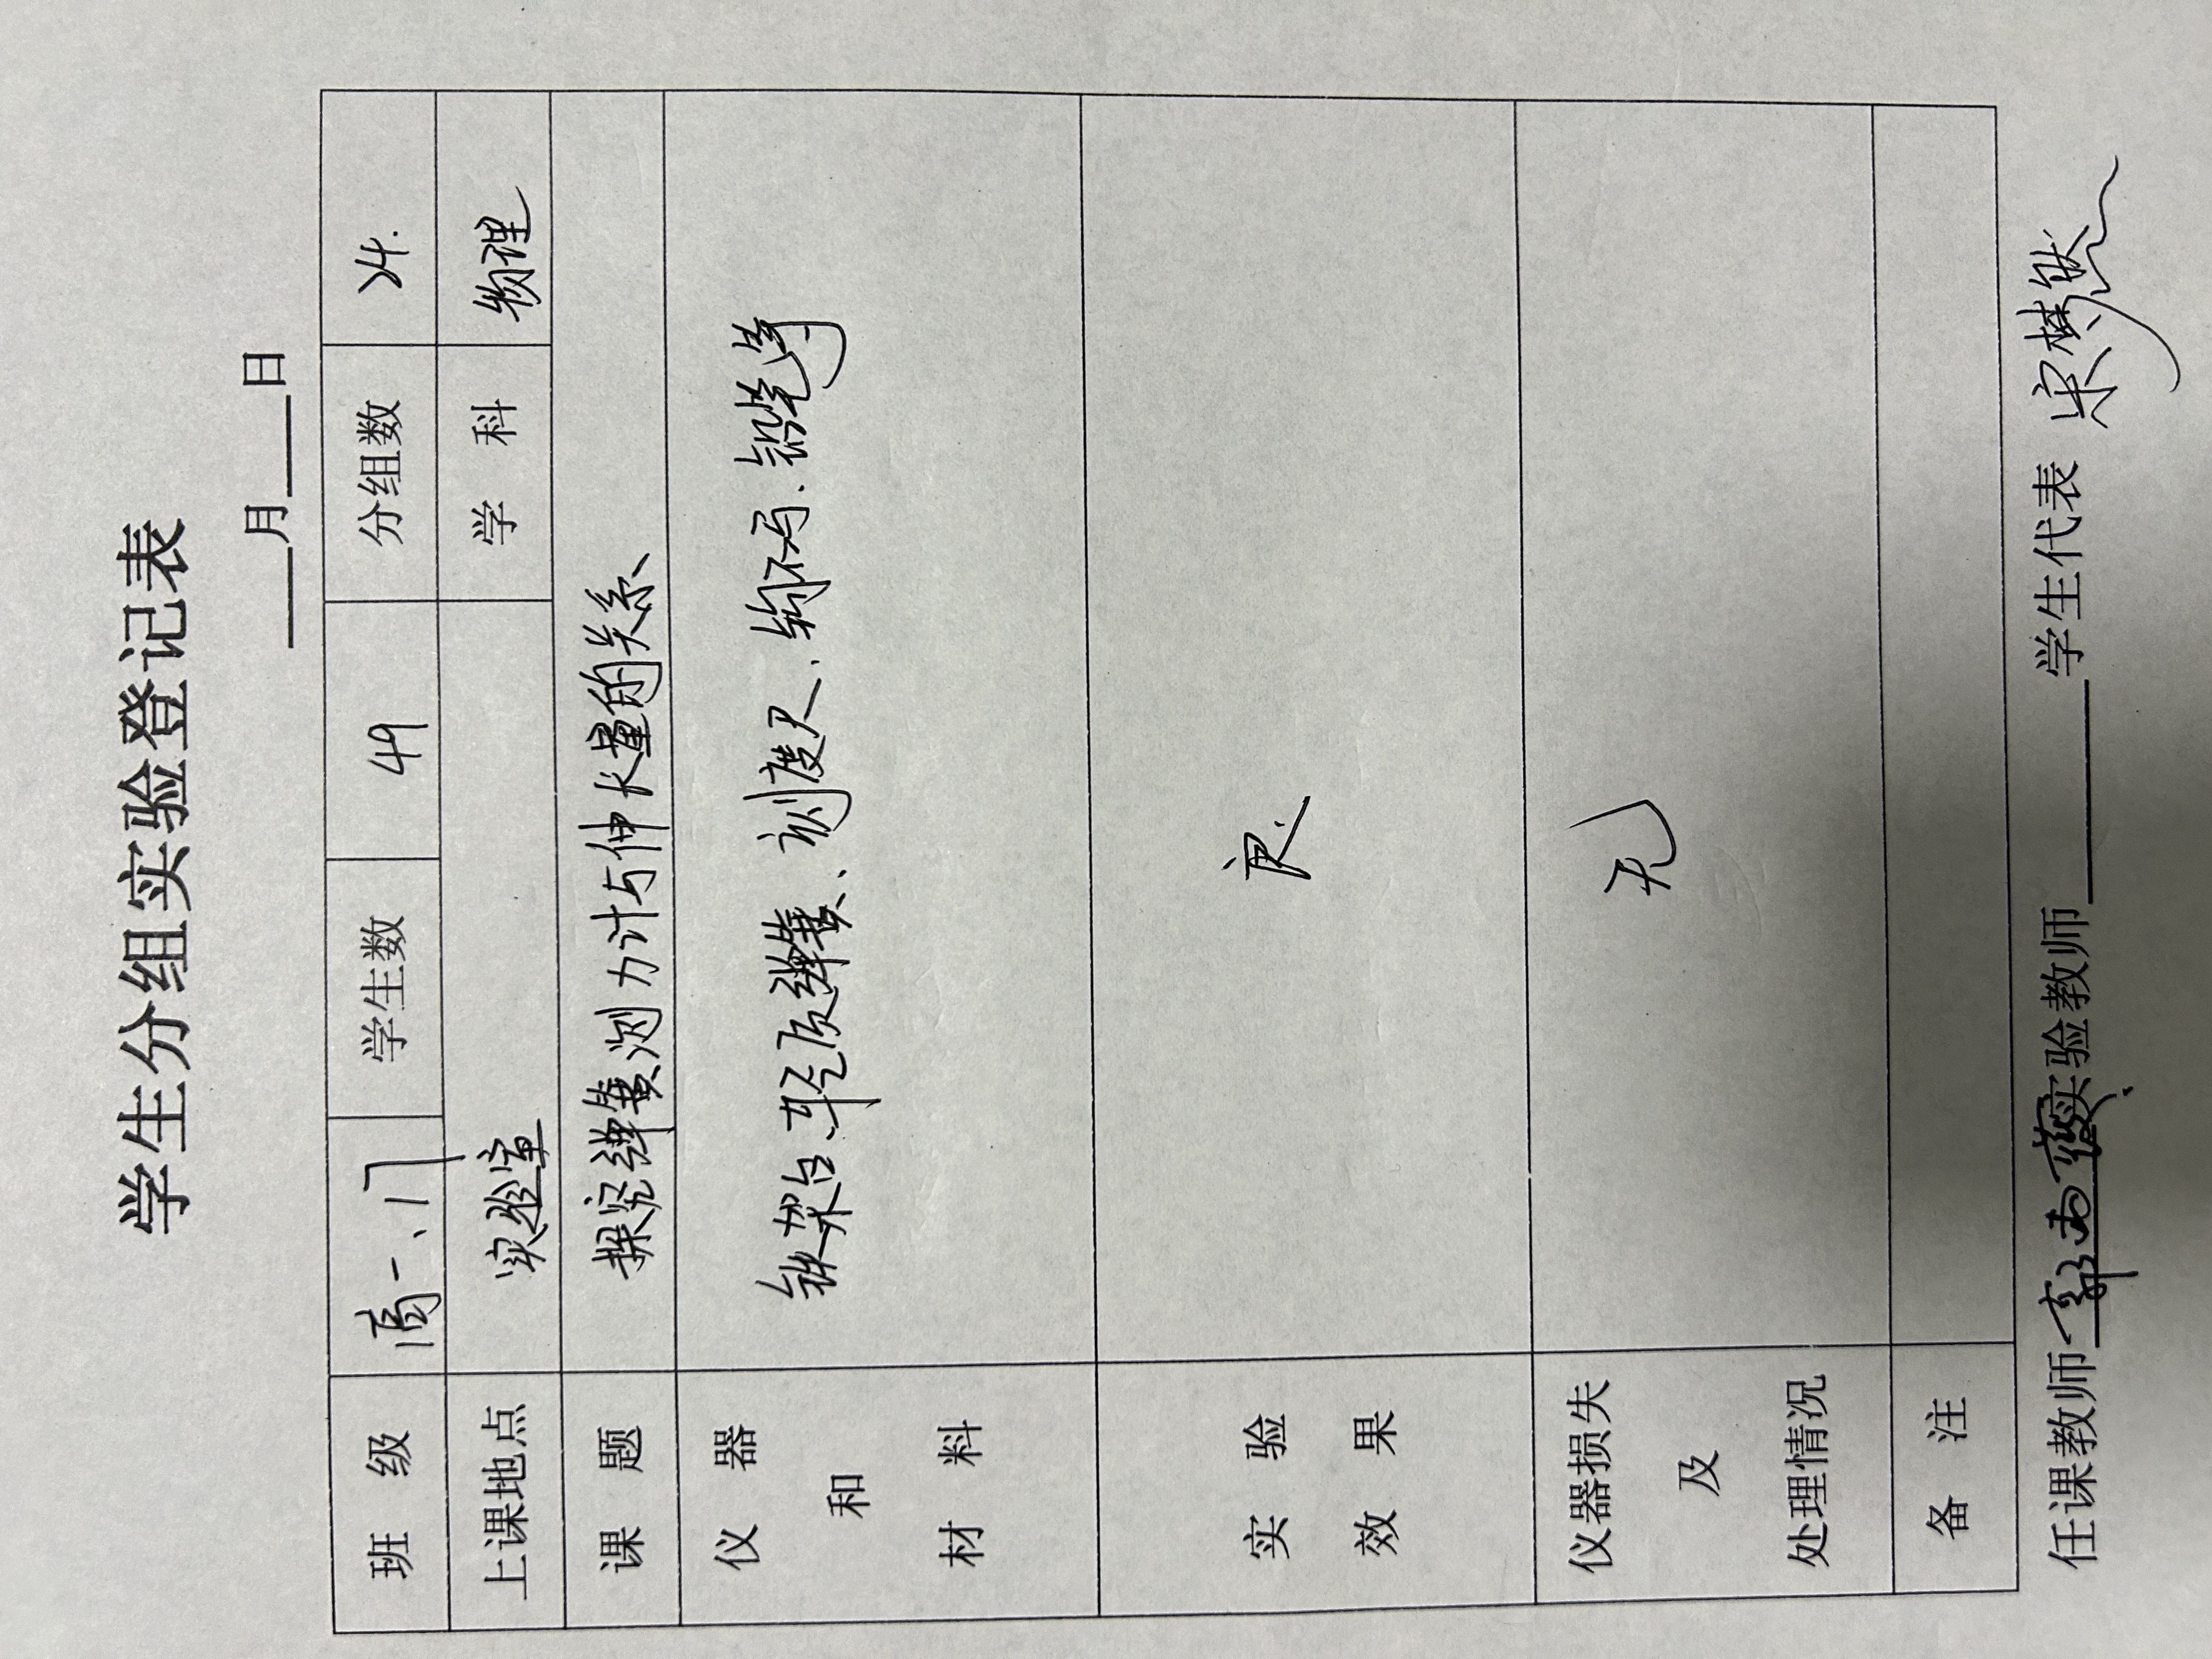 学生分组实验登记表
___月___日
班 级 高一、17 学生数 49 分组数 24.
上课地点 实验室 学 科 物理
课 题 探究弹簧测力计与伸长量的关系
仪 器 和 材 料 铁架台、轻质弹簧、刻度尺、钩码、铅笔等
实 验 效 果 良.
仪器损失 及 处理情况 无
备 注
任课教师 实验教师______学生代表